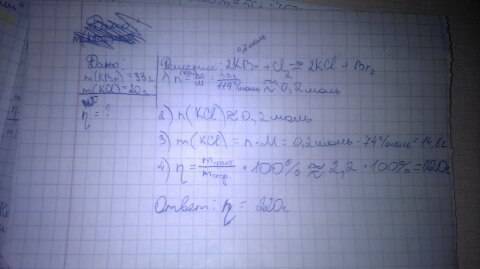 Дано:
m(KBr)=33г
m(KCl)=20г
η=?
Решение: 2KBr+Cl₂=2KCl+Br₂
0,2 моль
1) n= m/M ≈ 0,2 моль
119 г/моль
2) n(KCl)≈0,2 моль
3) m(KCl)=n·M=0,2моль·74г/моль=
4) η= ·100%≈2,2·100%=220
Ответ: η= 220